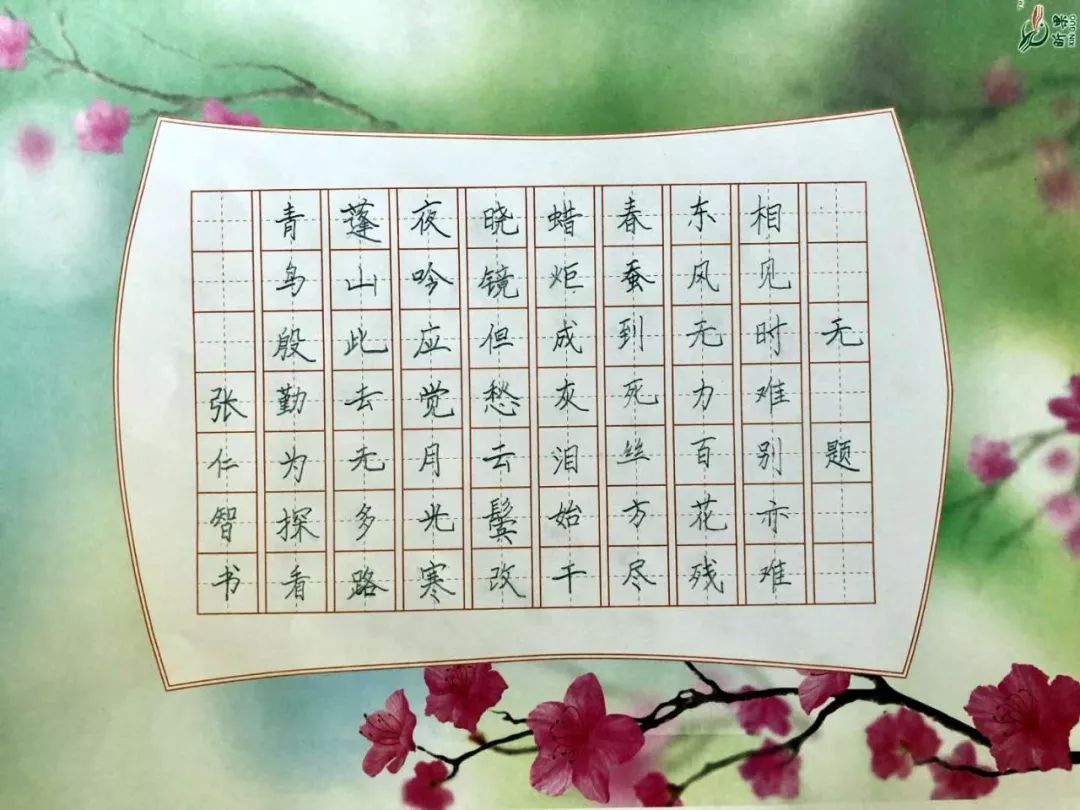 无题
相见时难别亦难
东风无力百花残
春蚕到死丝方尽
蜡炬成灰泪始干
晓镜但愁云鬓改
夜吟应觉月光寒
蓬山此去无多路
青鸟殷勤为探看
张仁智书